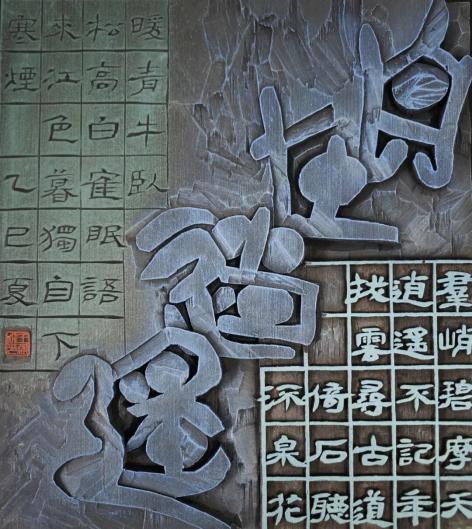 羣峭碧摩天
逍遥不記年
撥雲尋古道
倚石聽
流泉花
暖青牛臥
松高白隺眠語
来江色暮獨自下
寒煙乙巳夏